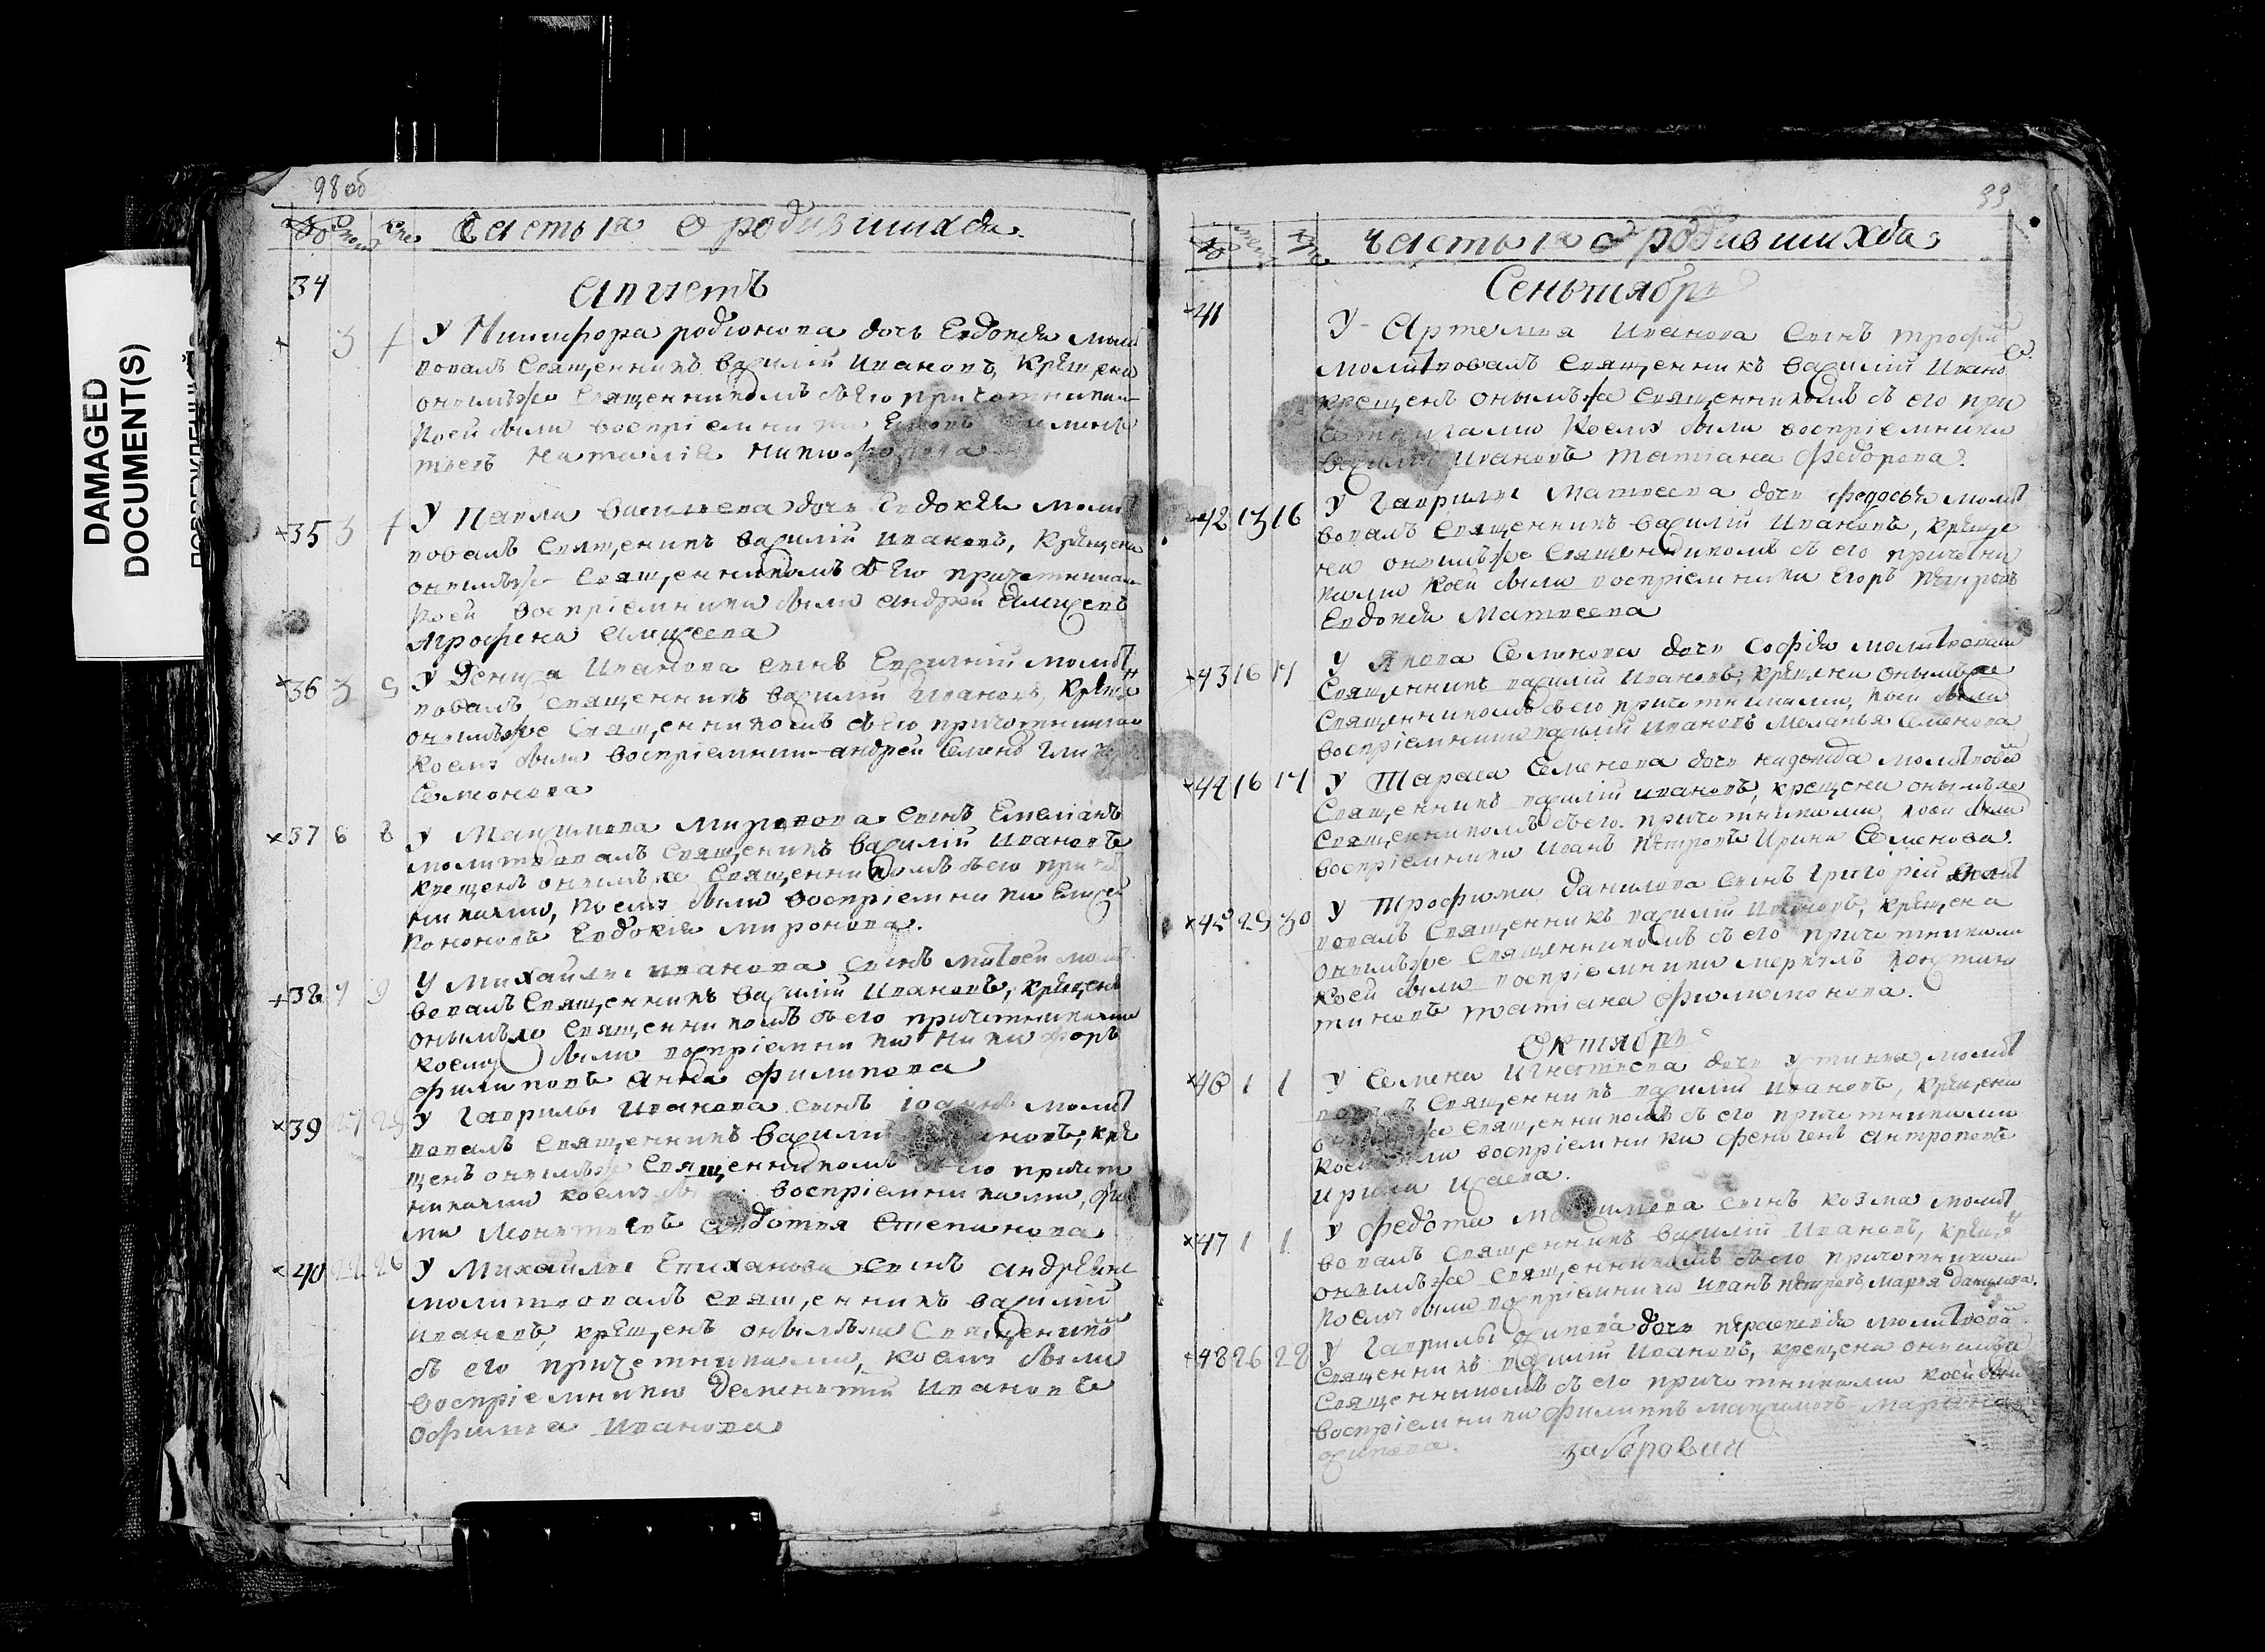 DAMAGED
DOCUMENT(S)
98 об
Часть 1я о родившихся
34
Августъ
3 4 У Никифора родионова дочь Евдокия молит
вовалъ Священникъ василій Ивановъ, крещена
онымъже Священникомъ съ его причотникам
коей были воспріемники
Наталія Никифорова
35 3 4 У Павла васильева дочь Евдокия молит
вовалъ Священикъ василій ивановъ, крещена
онымъже Священникомъ съ его причетникам
коей воспріемники были андрей Алиѯеевъ
Агрофена алиѯеева
36 3 5 У Дениса Иванова сынъ молит
вовалъ священникъ василій Ивановъ, креще
онымъже Священникомъ съ его причотникам
коему были воспріемник андрей
Семионова
37 6 8 У Маѯимова Миронова сынъ Емеліанъ
молитвовалъ Священикъ василій Ивановъ
крещенъ онымъ же Священникомъ съ его приче
никами, коему были воспріемники Елисей
Кононовъ Евдокія миронова.
38 7 9 У Михайлы иванова сынъ Матвей мол
вовалъ Священникъ василій Ивановъ, крещенъ
онымъже Священникомъ съ его причетниками
коему были воспріемники Никифоръ
Филиповъ Анна Филипова
39 27 29 У Гаврилы Иванова сынъ іоаннъ молит
вовалъ Священникъ васили ановъ, кре
щенъ онымъже Священникомъ съ его причет
никами коему воспріемниками,
авдотья Степанова
40 22 26 У Михайлы Епиханова сынъ андреянъ
молитвовалъ священникъ василий
Ивановъ, крещенъ онымъже Священико
съ его причетниками, коему были
воспріемники Дементий Ивановъ
Офимья Иванова
99
часть 1я о родившихся
Сеньтябрь
41
У Артемия Иванова сынъ трофи
молитвовалъ священникъ василий Ивано
крещенъ онымъже священникомъ съ его при
четниками коему были воспріемники
Ивановъ татіана федорова.
42 13 16 У Гаврилы Матвеева дочь федосья молит
вовалъ священникъ василій Ивановъ, креще
на онымъже Священникомъ съ его причетни
ками коей были воспріемники Егоръ Петровъ
Евдокия Матвеева
43 16 17 У Якова Семионова дочь Софія молитвовал
Священникъ василий Ивановъ, крещена онымъже
Священникомъ съ его причетниками, коей были
воспріемники василій Ивановъ Меланья Семенова
44 16 17 У Тараса Семенова дочь надежда молитвова
Священникъ василій ивановъ, крещена онымъже
Священникомъ съ его причетниками, коей были
воспріемники Иванъ Петровъ Ирина Семенова.
45 29 30 У Трофима Данилова сынъ Григорій молит
вовалъ Священникъ василій Ивановъ, крещена
онымъже Священникомъ съ его причетникам
коей были воспріемники меркулъ констан
тиновъ татіана филимонова.
Октябрь
46 1 1 У Семена Игнатьева дочь Устинья, молит
Священникъ василий Ивановъ, крещена
же Священникомъ съ его причетниками
коей были воспріемники фенагенъ антроповъ
Ирина Исаева.
47 1 1 У федота Маѯимова сынъ Козма молит
вовалъ Священникъ василій Ивановъ, креще
онымъже Священникомъ съ его причетникам
коему были воспріемники Иванъ Петровъ Марья данилова.
48 26 28 У Гаврилы дочь параскевія молитвова
Священникъ василій Ивановъ, крещена онымъже
Священникомъ съ его причетниками коей были
воспріемники Филиппъ маѯимовъ
Заборовии